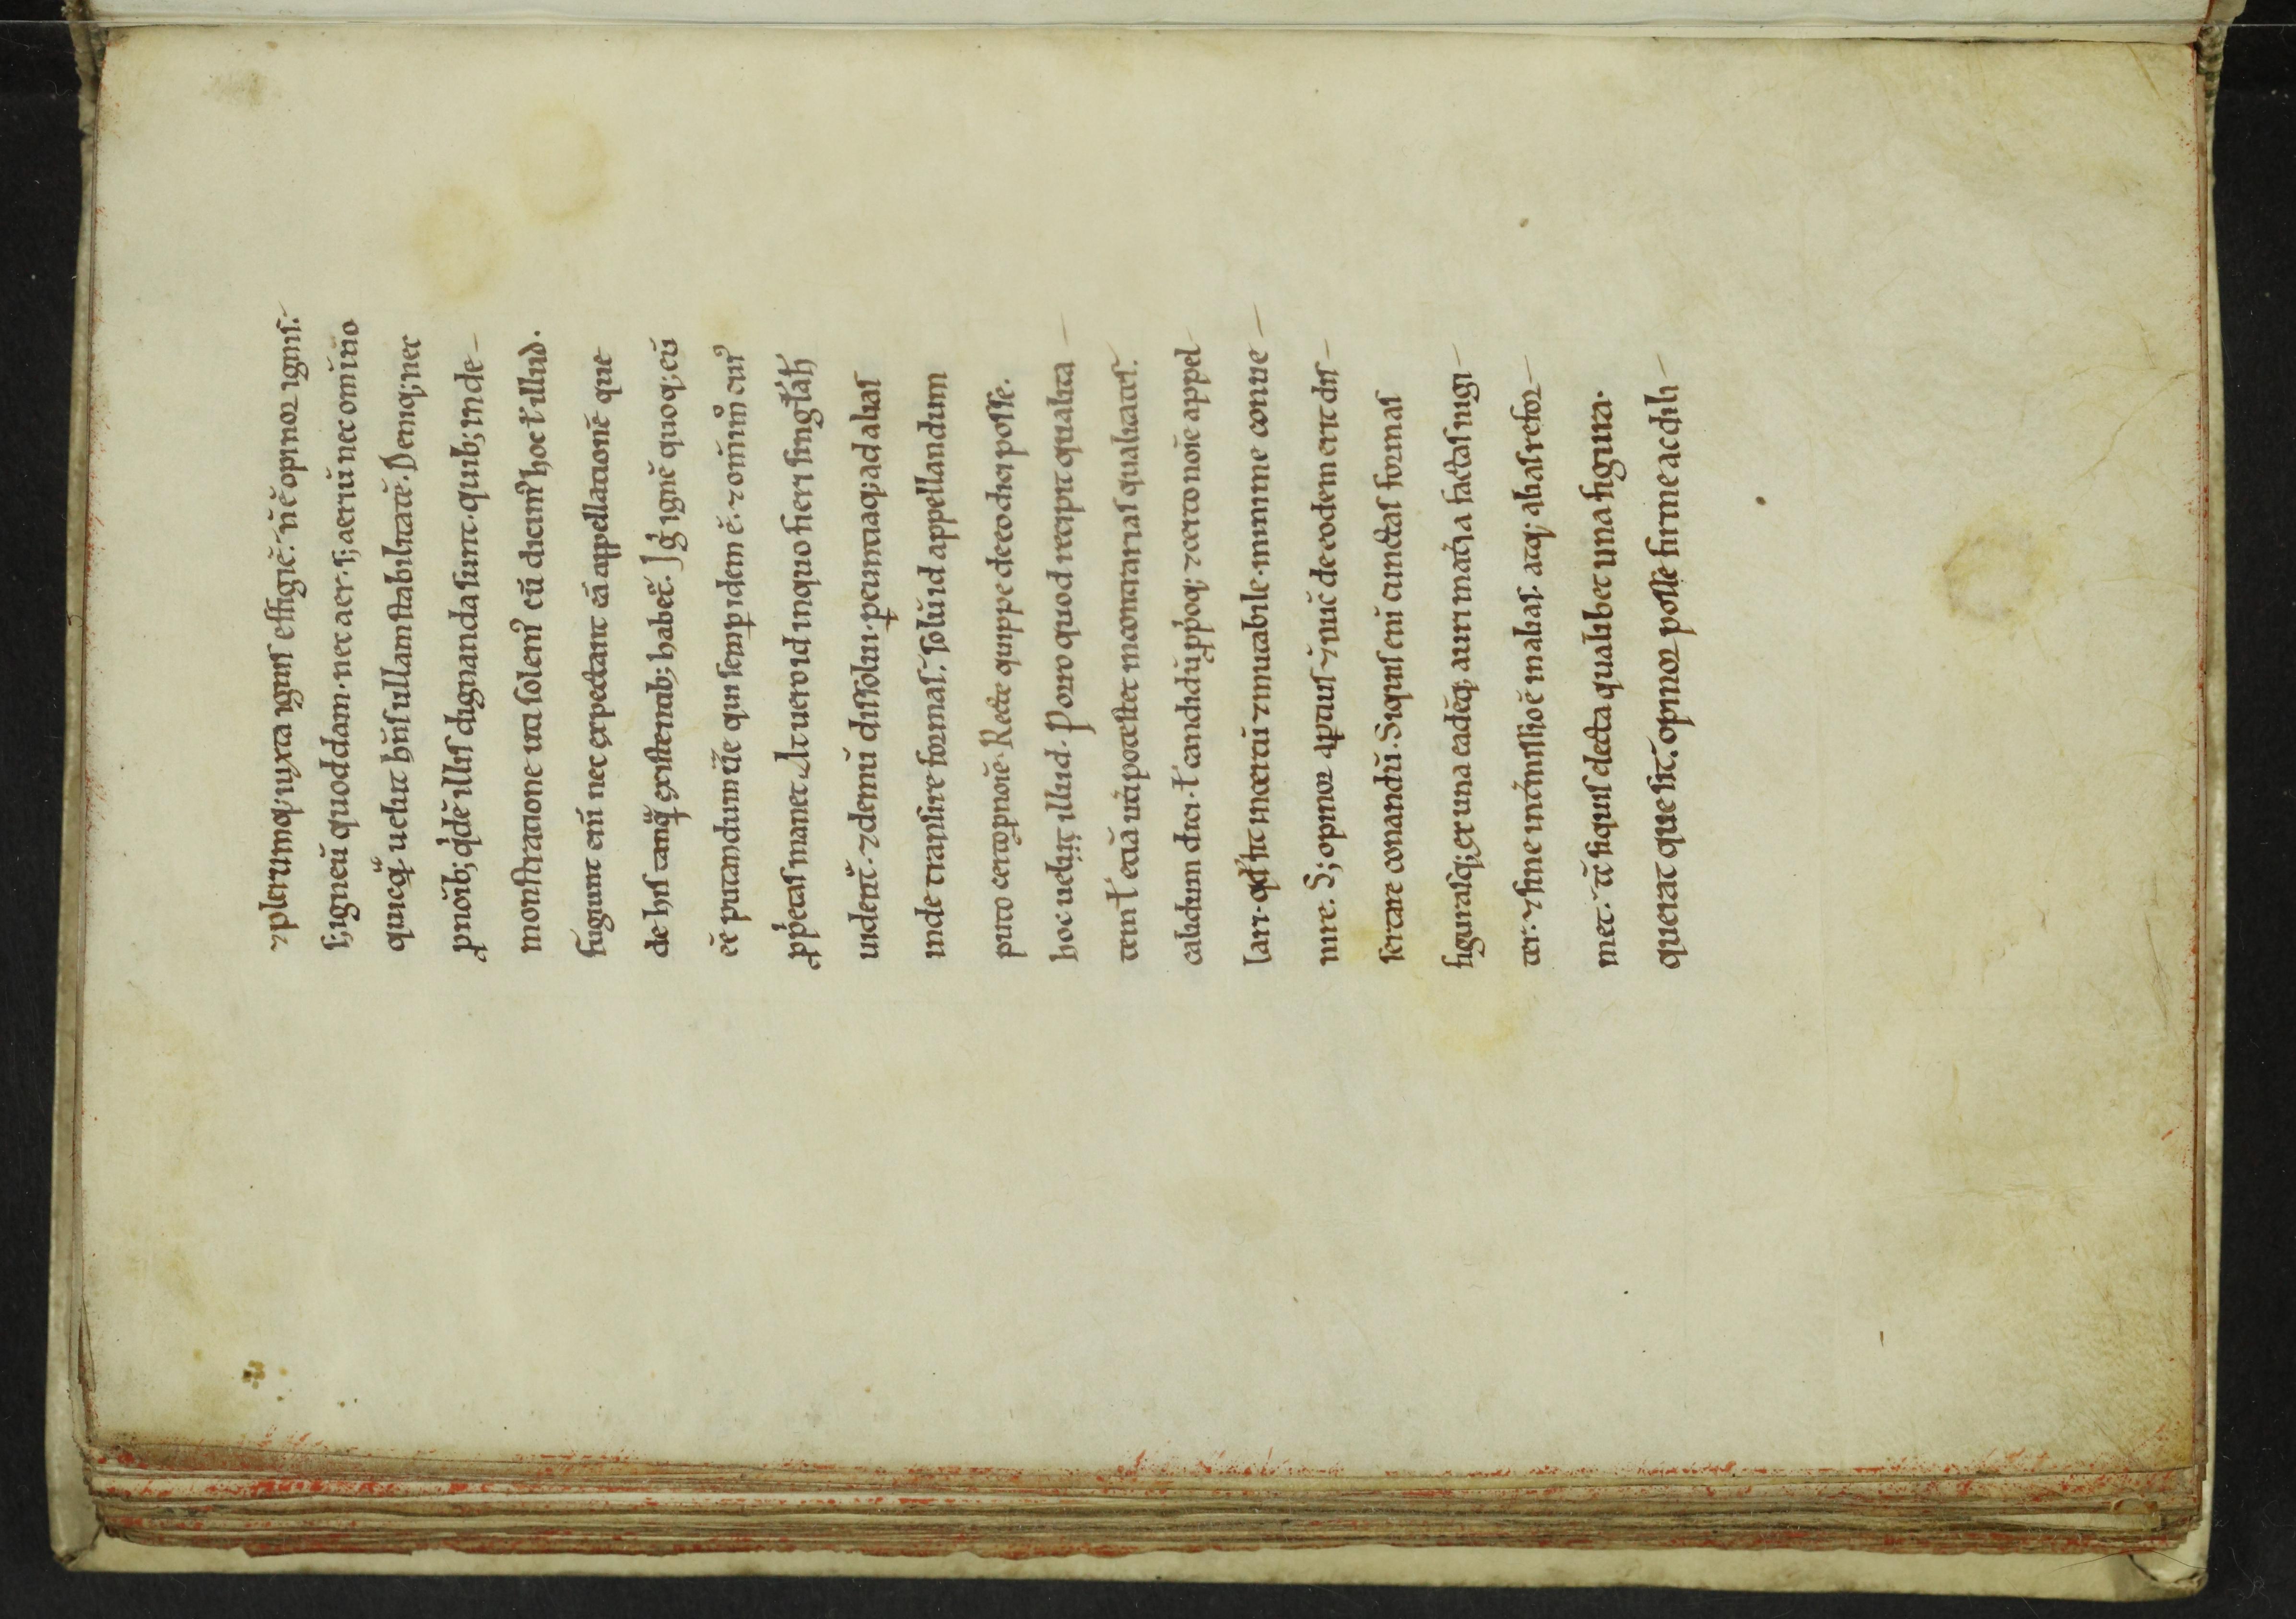 ⁊plerumq; iuxta ignis effigiē. n̄ ē opinor ignis.
s; igneū quoddam. nec aer. s; aeriū nec om̄ino
quicq̄ uelut h̄ns ullam stabilitatē. Deniq; nec
ꝓnoīb; q̇dē illis dignanda sunt. quib; in de-
monstratione uti solemꝰ cū dicimꝰ hoc ł illud.
fugiunt eni nec expectant eā appellationē que
de his tanq̄ existentib; habet̃. Igͥ ignē quoq; eū
eē putandum ūe qui semꝑ idem ē. ⁊ om̄e cuiꝰ
ꝓp̍etas manet. At uero id in quo fieri singła h̍
uident̃. ⁊ demū dissolui. ꝑeuntiaq; ad alias
inde transire formas. solū id appellandum
puto certo ꝓnoīe. Recte quippe de eo dici posse.
hoc uel illud. Porro quod recipit qualita-
tem ł etiā uti potest et in contrarias qualitates.
calidum dici. ł candidū ꝓp̍oq; ⁊ certo noīe appel
lari. qd̍ sit incertū ⁊ mutabile. minime conue-
nire. S; opinor aptius ⁊ nūc de eodem erit dis-
sertare conandū. Siquis eni cunctas formas
figurasq; ex una eadēq; auri matͥa factas iugi-
ter. ⁊ sine int̃missioē in alias. atq; alias refor-
met. tū siquis electa qualibet una figura.
querat que sit. opinor posse firme ac dili-